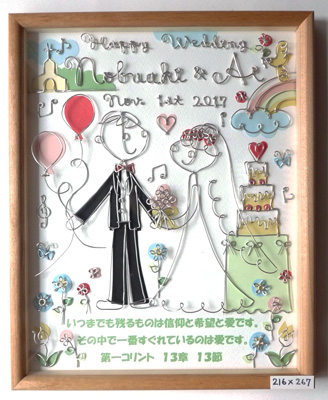 Happy Wedding
Nobuaki & Ai
Nov. 1st 2017
いつまでも残るものは信仰と希望と愛です。
その中で一番すぐれているのは愛です。
第一コリント 13章 13節
216×267